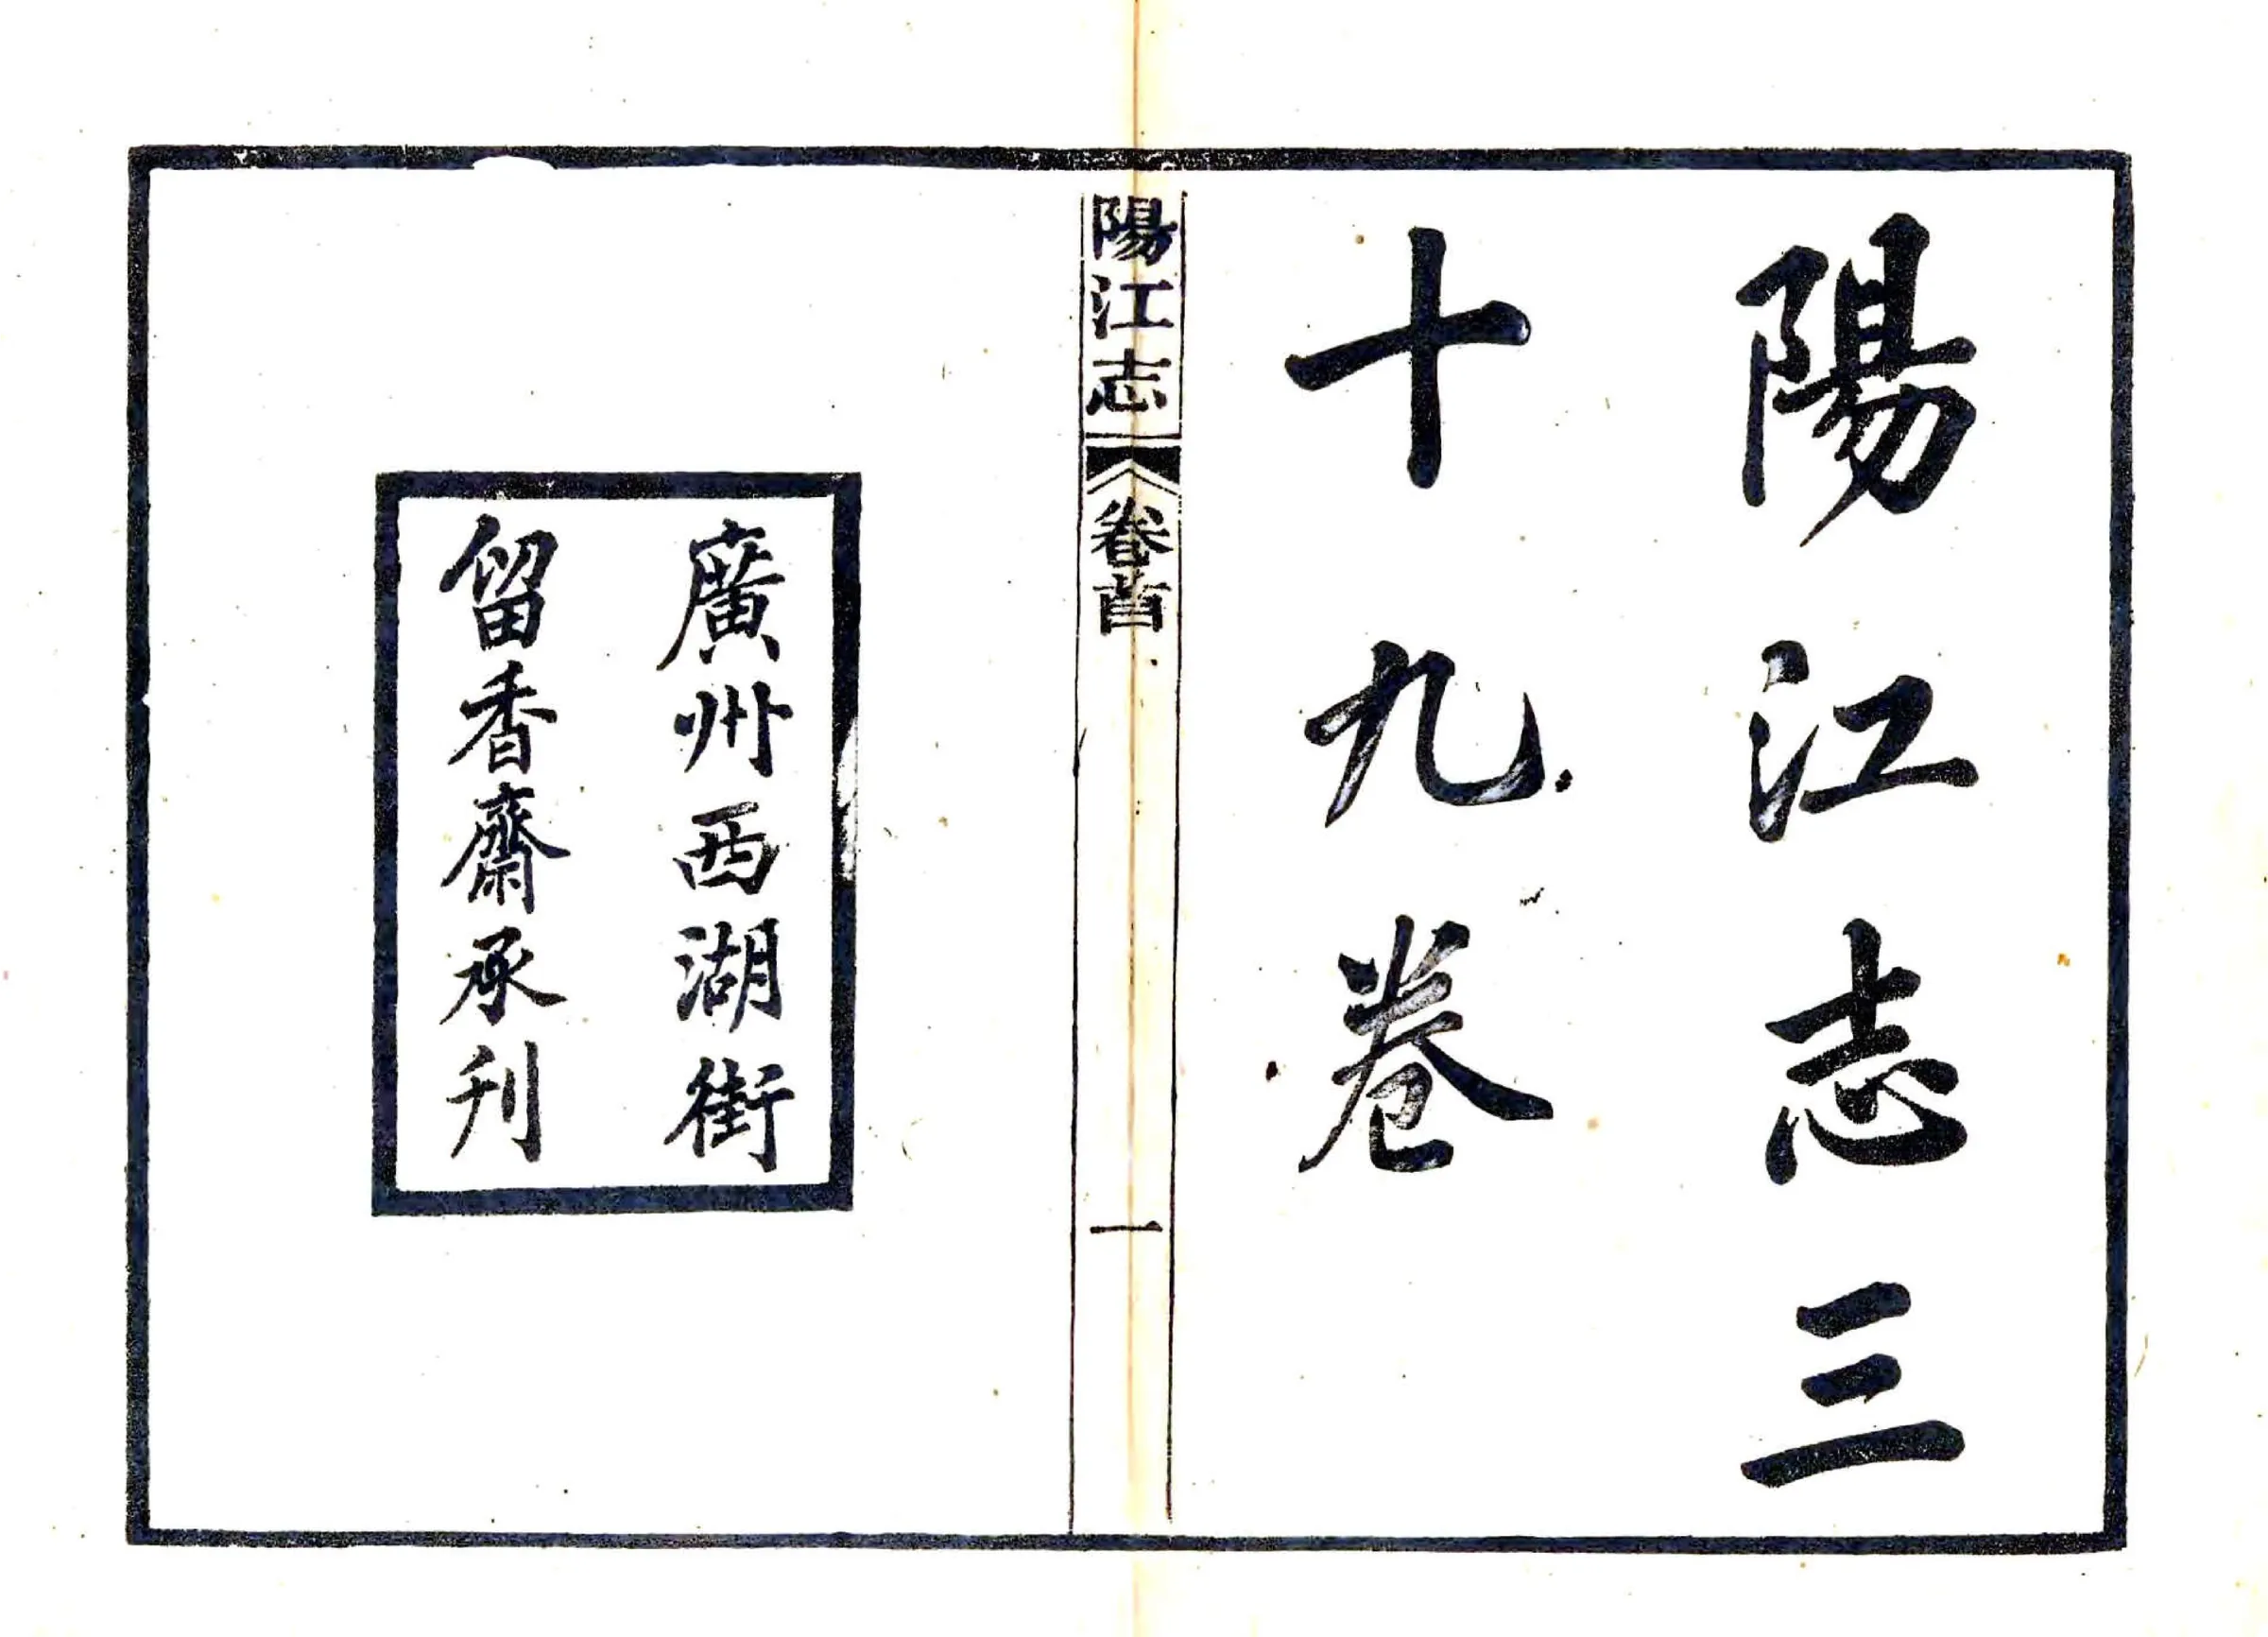 陽江志三
十九卷
陽江志
卷首
一
廣州西湖街
留香齋承刊